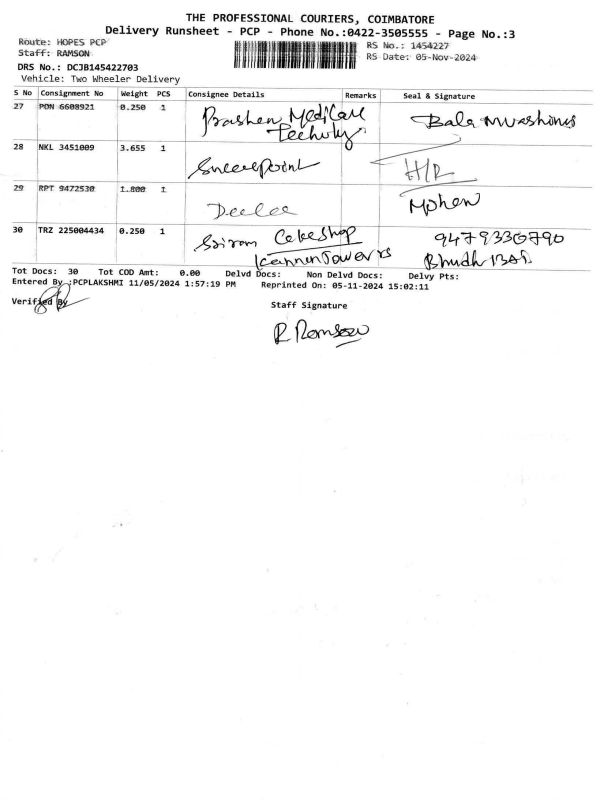 THE PROFESSIONAL COURIERS, COIMBATORE
Delivery Runsheet - PCP - Phone No.:0422-3505555 - Page No.:3
Route: HOPES PCP
RS No.: 1454227
Staff: RAMSON
RS Date: 05-Nov-2024
DRS No.: DCJB145422703
Vehicle: Two Wheeler Delivery
S No Consignment No Weight PCS Consignee Details Remarks Seal & Signature
27 PON 6608921 0.250 1 Medicare
28 NKL 3451009 3.655 1 H/R
29 RPT 9472530 1.800 1 Mohan
30 TRZ 225004434 0.250 1 Sriram Cakeshop 9479330790
Kannan Towers
Tot Docs: 30 Tot COD Amt: 0.00 Delvd Docs: Non Delvd Docs: Delvy Pts:
Entered By :PCPLAKSHMI 11/05/2024 1:57:19 PM Reprinted On: 05-11-2024 15:02:11
Verified By
Staff Signature
R Ramson